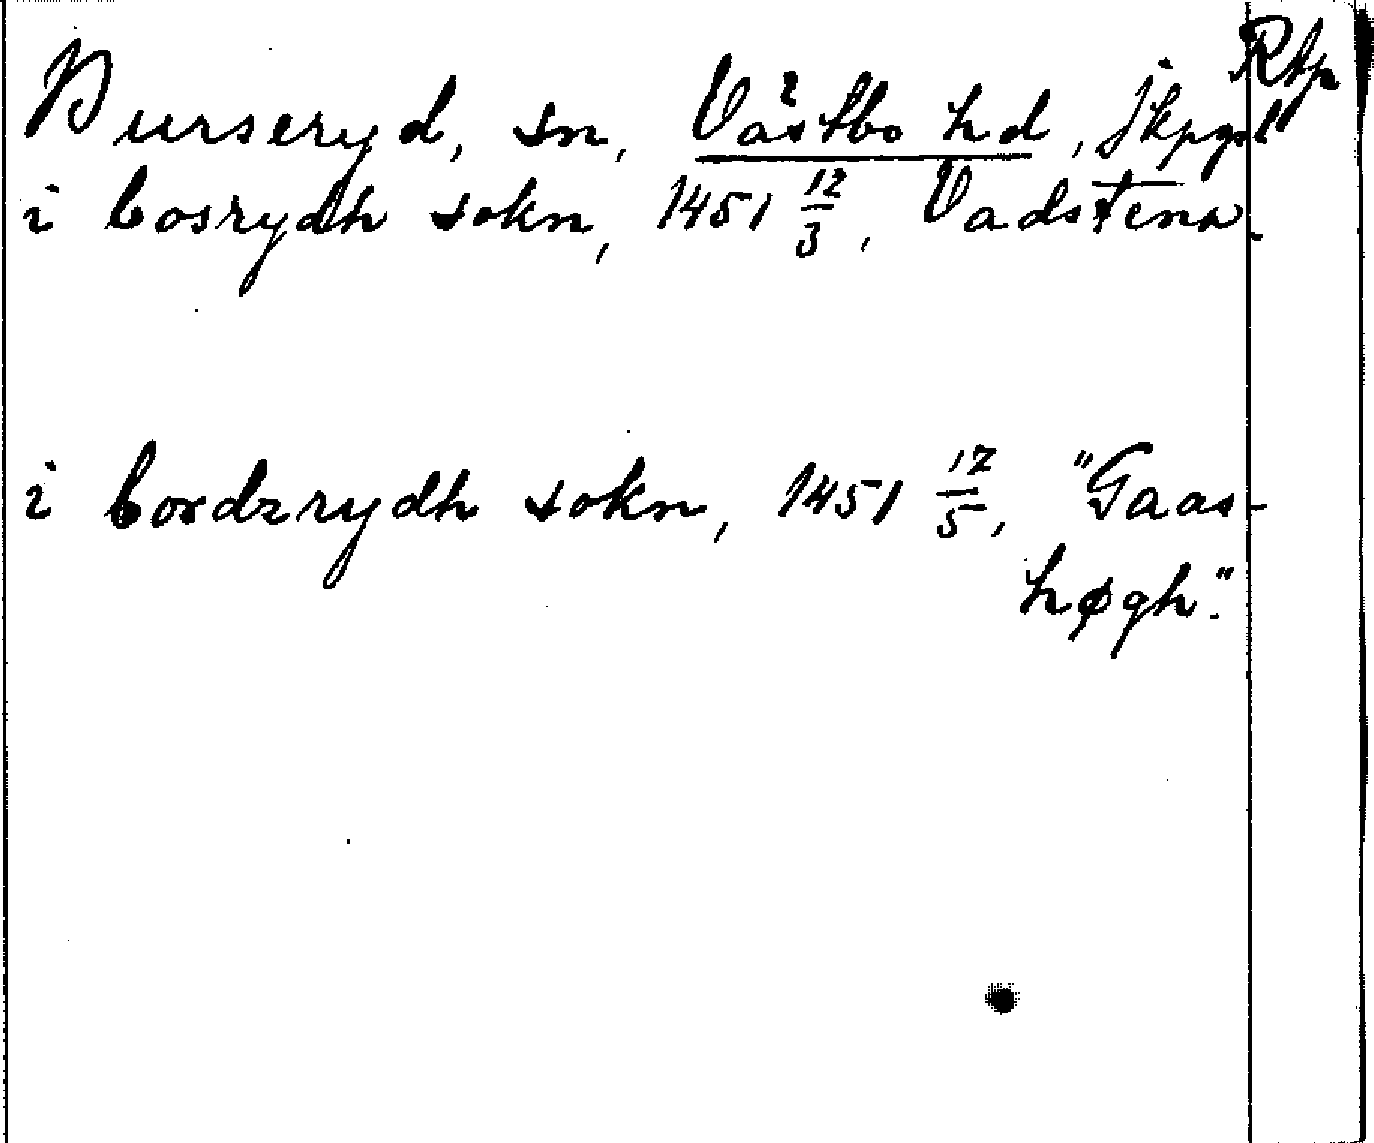 Rtp
Burseryd, sn, Västbo hd, Jkpgs l
i bosrydh sokn, 1451 12/3, Vadstena.
i bordzrydh sokn, 1451 12/5, "Gaas-
høgh".